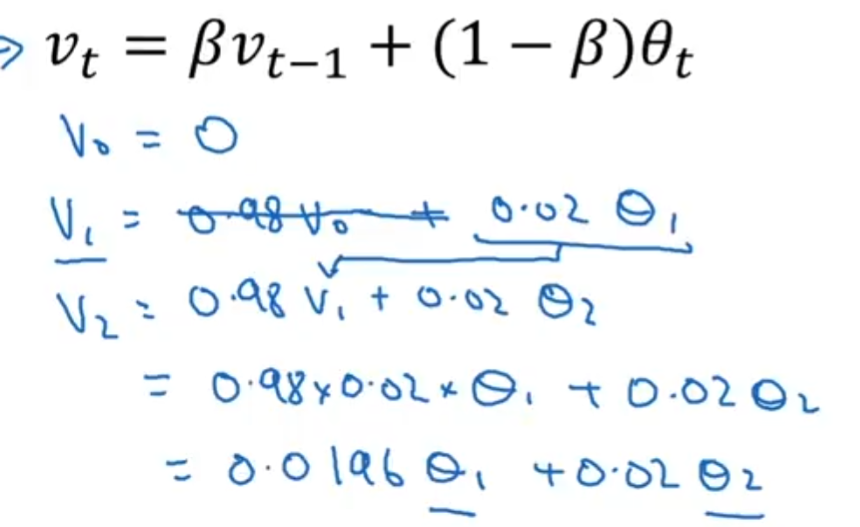 ⇒ vₜ = βvₜ₋₁ + (1 − β)θₜ
V₀ = 0
V₁ = 0.98 V₀ + 0.02 θ₁
V₂ = 0.98 V₁ + 0.02 θ₂
= 0.98 x 0.02 x θ₁ + 0.02 θ₂
= 0.0196 θ₁ + 0.02 θ₂